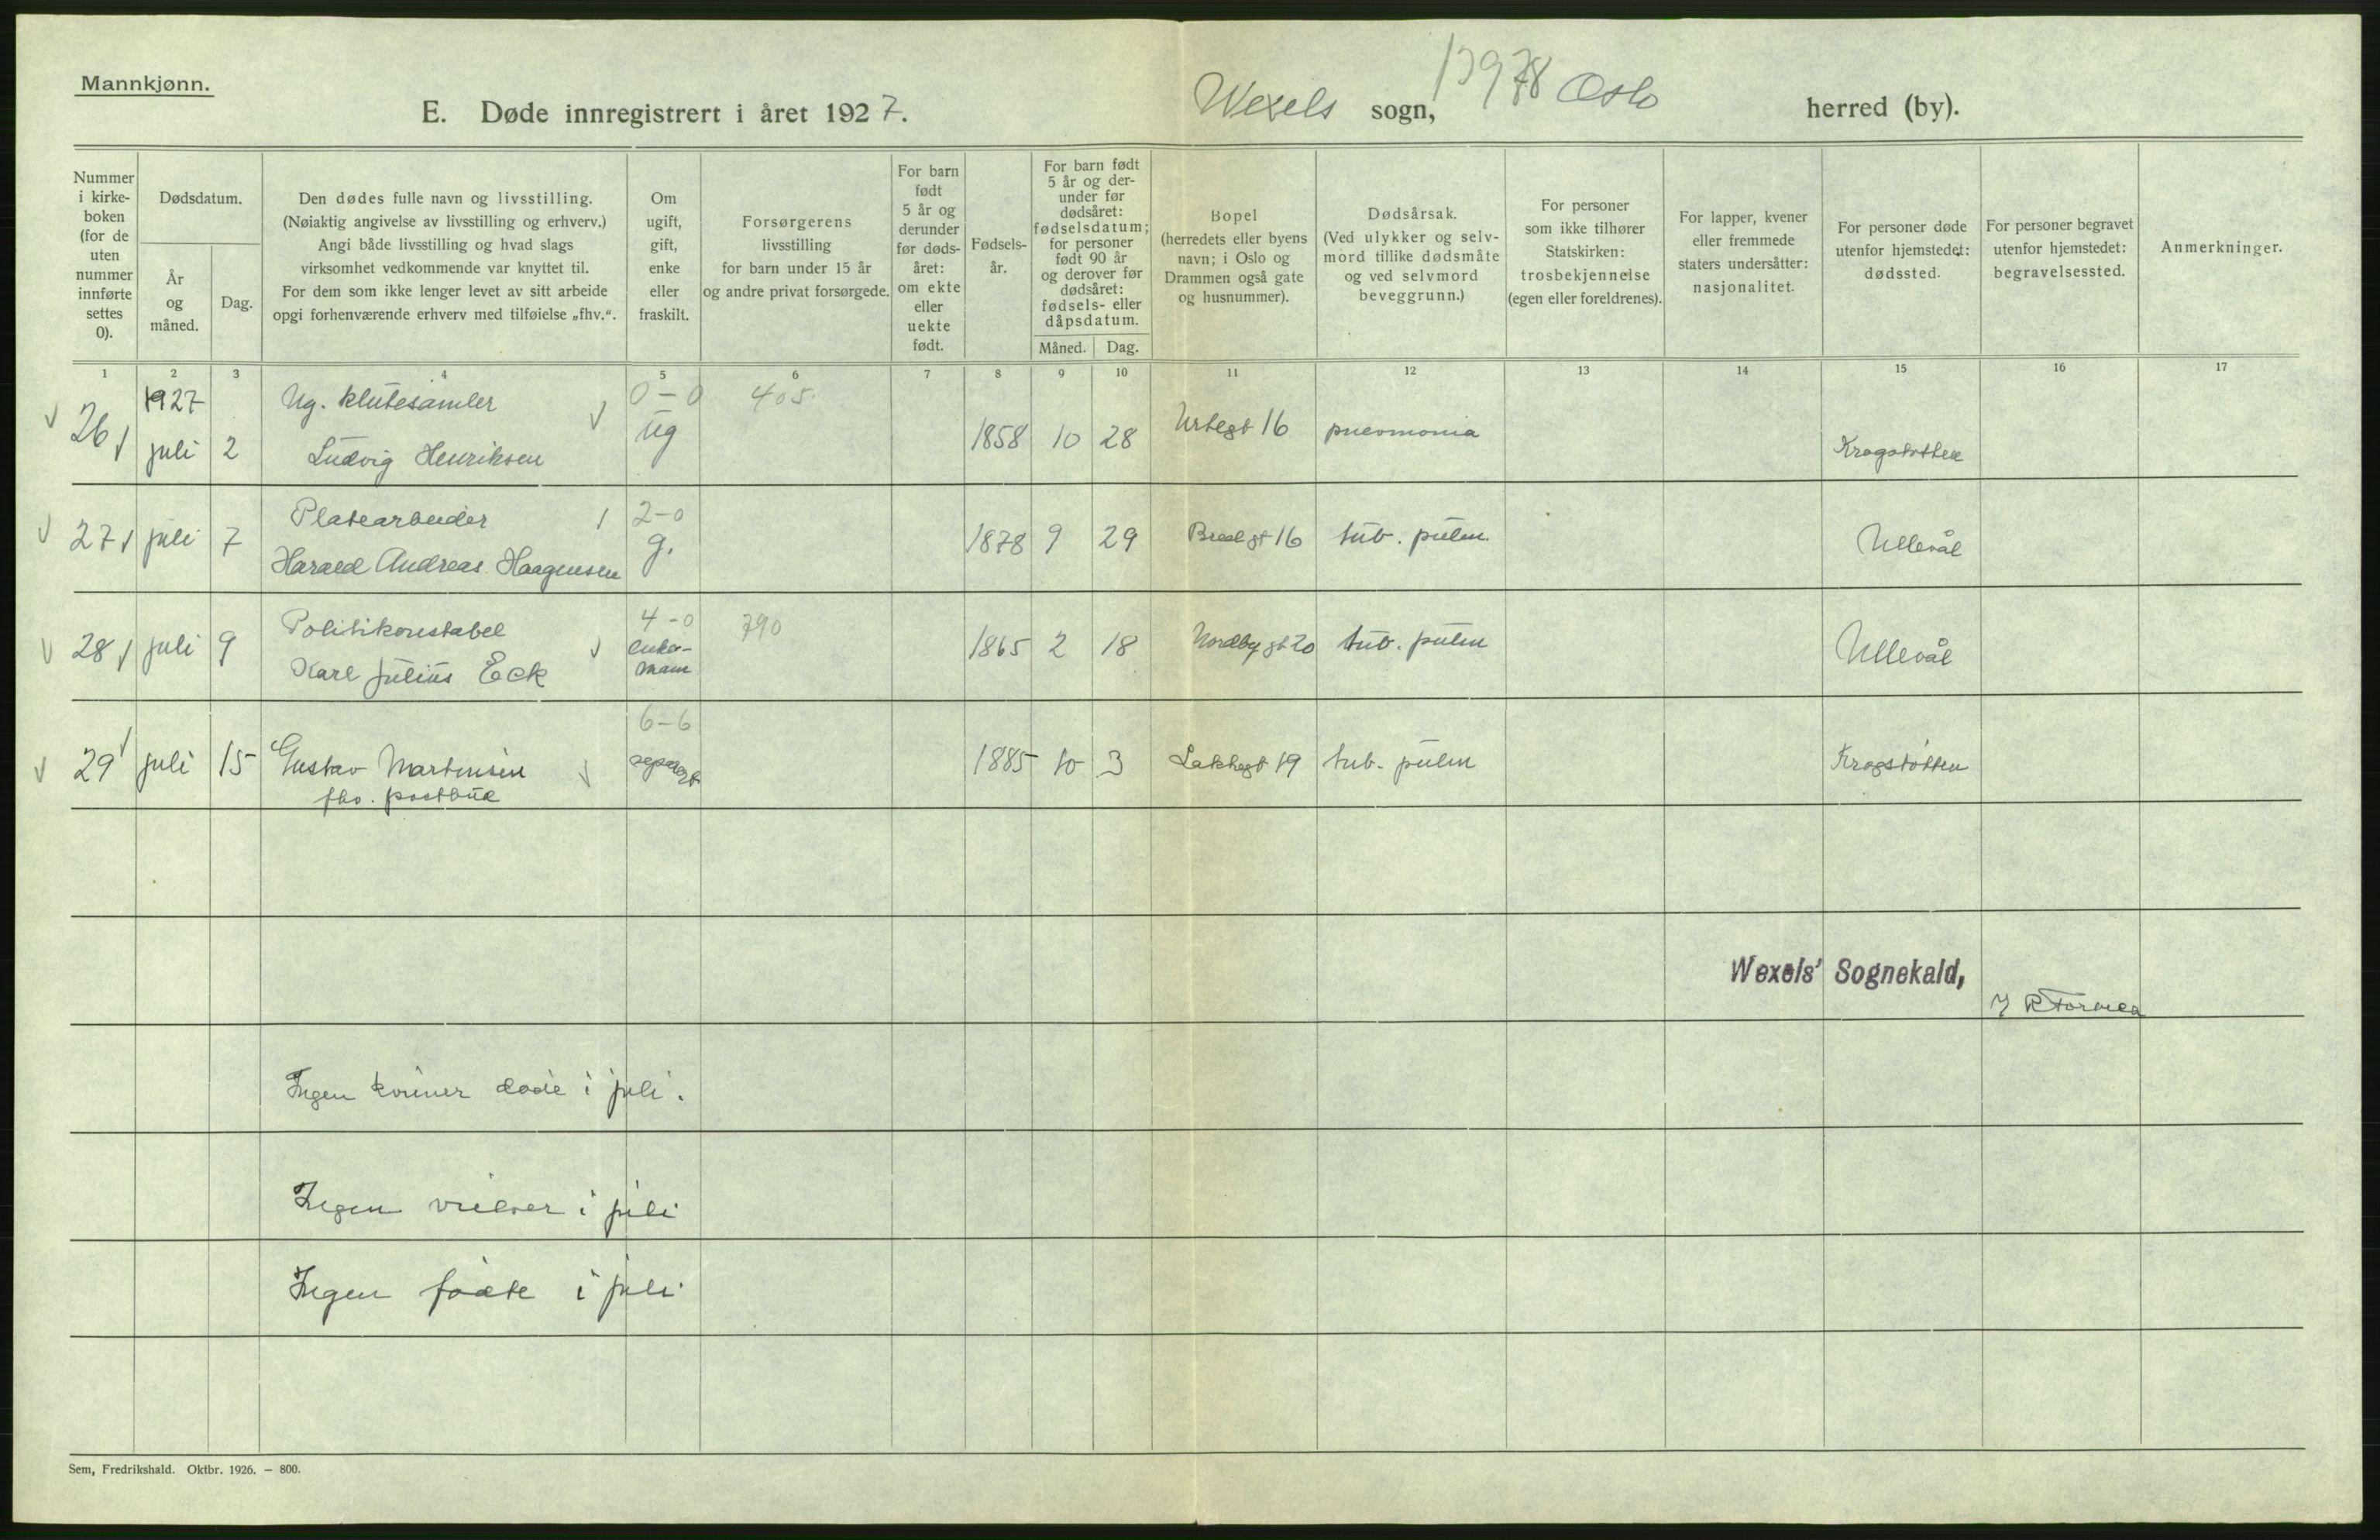 Mannkjønn.
E. Døde innregistrert i året 1927.
Wexels sogn, Oslo herred (by).
Nummer i kirke- boken (for de uten nummer innførte settes 0).
Dødsdatum.
År og måned.
Dag.
Den dødes fulle navn og livsstilling.
(Nøiaktig angivelse av livsstilling og erhverv.)
Angi både livsstilling og hvad slags
virksomhet vedkommende var knyttet til.
For dem som ikke lenger levet av sitt arbeide
opgi forhenværende erhverv med tilføielse „fhv.“.
Om ugift, gift, enke eller fraskilt.
Forsørgerens
livsstilling
for barn under 15 år
og andre privat forsørgede.
For barn født 5 år og derunder før døds- året: om ekte eller uekte født.
Fødsels- år.
For barn født 5 år og der- under før dødsåret: fødselsdatum; for personer født 90 år og derover før dødsåret: fødsels- eller dåpsdatum.
Måned. Dag.
Bopel
(herredets eller byens
navn; i Oslo og
Drammen også gate
og husnummer).
Dødsårsak.
(Ved ulykker og selv-
mord tillike dødsmåte
og ved selvmord
beveggrunn.)
For personer
som ikke tilhører
Statskirken:
trosbekjennelse
(egen eller foreldrenes).
For lapper, kvener
eller fremmede
staters undersåtter:
nasjonalitet.
For personer døde
utenfor hjemstedet:
dødssted.
For personer begravet
utenfor hjemstedet:
begravelsessted.
Anmerkninger.
1 2 3 4 5 6 7 8 9 10 11 12 13 14 15 16 17
1927 Ug. klutesamler 0-0 405
26 juli 2 Ludvig Henriksen ug 1858 10 28 Urtegt 16 pneomonia Krogstøtten
Platearbeider 2-0
27 juli 7 Harald Andreas Haagensen g. 1878 9 29 Bredgt 16 tub. pulm. Ullevål
Politikonstabel 4-0 790
28 juli 9 Karl Julius Eck enke- mann 1865 2 18 Nordbygt 20 tub. pulm Ullevål
6-6
29 juli 15 Gustav Martinsen separert 1885 10 3 Lakkegt 19 tub. pulm Krogstøtten
fhv. postbud
Wexels' Sognekald,
Ingen kvinner døde i juli.
Ingen vielser i juli
Ingen fødte i juli
Sem, Fredrikshald. Oktbr. 1926. — 800.